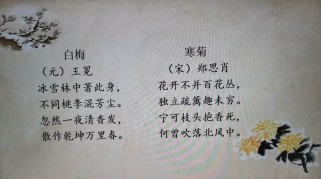 白梅
（元）王冕
冰雪林中著此身，
不同桃李混芳尘。
忽然一夜清香发，
散作乾坤万里春。
寒菊
（宋）郑思肖
花开不并百花丛，
独立疏篱趣未穷。
宁可枝头抱香死，
何曾吹落北风中。